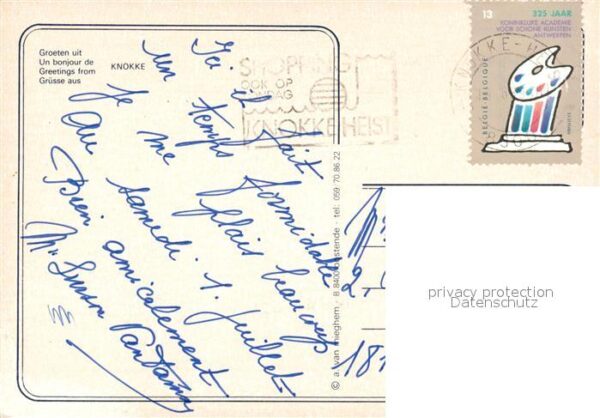 Groeten uit
Un bonjour de
Greetings from
Grüsse aus
KNOKKE
SHOPPING
OOK OP
ZONDAG
KNOKKE HEIST
KNOKKE-H
13
325 JAAR
KONINKLIJKE ACADEMIE
VOOR SCHONE KUNSTEN
ANTWERPEN
BELGIË-BELGIQUE
Ici il fait
un temps formidable
Je me plais beaucoup
Au samedi 1. Juillet
Bien amicalement
© a. van mieghem - B 8400 oostende - tel. 059-70.86.22
privacy protection
Datenschutz